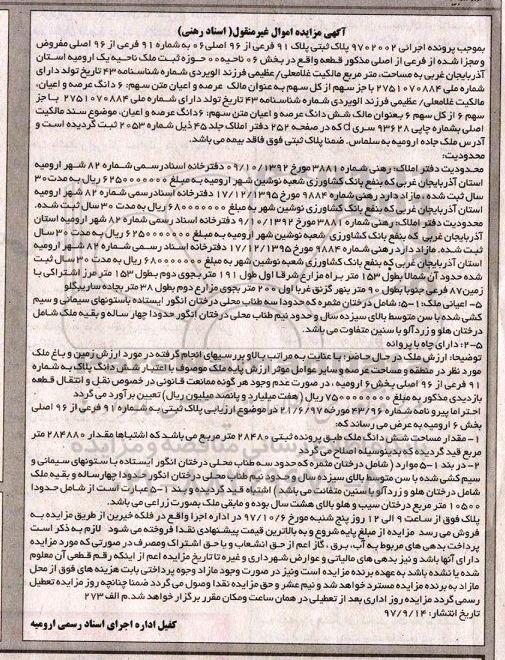 آگهی مزایده اموال غیرمنقول( اسناد رهنی)
بموجب پرونده اجرائی ۹۷۰۲۰۰۲ پلاک ثبتی پلاک ۹۱ فرعی از ۹۶ اصلی ۰۶ به شماره ۹۱ فرعی از ۹۶ اصلی مفروض
و مجزا شده از فرعی از اصلی مذکور قطعه واقع در بخش ۰۶ ناحیه ۰۰ حوزه ثبت ملک ناحیه یک ارومیه استان
آذربایجان غربی به مساحت، متر مربع مالکیت غلامعلی/عظیمی فرزند الویردی شماره شناسنامه ۴۳ تاریخ تولد دارای
شماره ملی ۲۷۵۱۰۷۰۸۸۴ با جز سهم از کل سهم به عنوان مالک عرصه و اعیان متن سهم: ۶ دانگ عرصه و اعیان،
مالکیت غلامعلی/ عظیمی فرزند الویردی شماره شناسنامه ۴۳ تاریخ تولد دارای شماره ملی ۲۷۵۱۰۷۰۸۸۴ با جز
سهم ۶ از کل سهم ۶ بعنوان مالک شش دانگ عرصه و اعیان متن سهم: ۶ دانگ عرصه و اعیان، موضوع سند مالکیت
اصلی بشماره چاپی ۹۳۶۲۸ سری d که در صفحه ۲۵۲ دفتر املاک جلد ۴۵ ذیل شماره ۲۰۵۳ ثبت گردیده است و
آدرس ملک جاده ارومیه به سلماس. ضمنا پلاک ثبتی فوق فاقد بیمه می باشد.
محدودیت:
محدودیت دفتر املاک: رهنی شماره ۳۸۸۱ مورخ ۰۹/۱۰/۱۳۹۲ دفترخانه اسناد رسمی شماره ۸۲ شهر ارومیه
استان آذربایجان غربی که بنفع بانک کشاورزی شعبه نوشین شهر ارومیه به مبلغ ۶۲۵۰۰۰۰۰۰۰ ریال به مدت ۳۰
سال ثبت شده. مازاد دارد رهنی شماره ۹۸۸۴ مورخ ۱۷/۱۲/۱۳۹۵ دفترخانه اسناد رسمی شماره ۸۲ شهر ارومیه
استان آذربایجان غربی که بنفع بانک کشاورزی شعبه نوشین شهر به مبلغ ۶۸۰۰۰۰۰۰۰۰ ریال به مدت ۳۰ سال ثبت شده.
محدودیت دفتر املاک: رهنی شماره ۳۸۸۱ مورخ ۹/۱۰/۱۳۹۲ دفترخانه اسناد رسمی شماره ۸۲ شهر ارومیه استان
آذربایجان غربی که بنفع بانک کشاورزی شعبه نوشین شهر ارومیه به مبلغ ۶۲۵۰۰۰۰۰۰۰ ریال به مدت ۳۰ سال
ثبت شده. مازاد دارد رهنی شماره ۹۸۸۴ مورخ ۱۷/۱۲/۱۳۹۵ دفترخانه اسناد رسمی شماره ۸۲ شهر ارومیه
استان آذربایجان غربی که بنفع بانک کشاورزی شعبه نوشین شهر به مبلغ ۶۸۰۰۰۰۰۰۰۰ ریال به مدت ۳۰ سال ثبت
شده حدود آن شمالا بطول ۱۵۳ متر براه مزارع شرقا اول طول ۱۹۱ متر بجوی دوم بطول ۱۵۳ متر مرز اشتراکی با
زمین ۸۷ فرعی جنوبا بطول ۹۰ متر بنهر گزنق غربا اول ۲۰۰ متر بجوی مزارع دوم بطول ۳۸ متر بجاده ساربیگلو
۵- اعیانی ملک: ۱-۵: شامل درختان مثمره که حدودا سه طناب محلی درختان انگور ایستاده باستونهای سیمانی و سیم
کشی شده با سن متوسط بالای سیزده سال و حدود نیم طناب محلی درختان انگور حدودا چهار ساله و بقیه ملک شامل
درختان هلو و زردآلو با سنین متفاوت می باشد.
۲-۵: دارای چاه با پروانه
توضیحا: ارزش ملک در حال حاضر: با عنایت به مراتب بالا و بررسیهای انجام گرفته در مورد ارزش زمین و باغ ملک
مورد نظر در منطقه و مساحت عرصه و سایر عوامل موثر ارزش پایه ملک موصوف با اعتبار شش دانگ پلاک به شماره
۹۱ فرعی از ۹۶ اصلی بخش ۶ ارومیه، در صورت عدم وجود هر گونه ممانعت قانونی در خصوص نقل و انتقال قطعه
بازدیدی مذکور به مبلغ ۷۵۰۰۰۰۰۰۰۰ ریال (هفت میلیارد و پانصد میلیون ریال) تعیین برآورد می گردد
احتراما پیرو نامه شماره ۴۳/۹۶ مورخه ۲۱/۶/۸۹۷ در موضوع ارزیابی پلاک ثبتی به شماره ۹۱ فرعی از ۹۶ اصلی
بخش ۶ ارومیه به عرض می رساند که:
۱- مقدار مساحت شش دانگ ملک طبق پرونده ثبتی ۲۸۴۸۰ متر مربع می باشد که اشتباها مقدار ۲۸۴۸۸۰ متر
مربع قید گردیده که بدینوسیله اصلاح می گردد
۲- در بند ۱-۵ موارد ( شامل درختان مثمره که حدود سه طناب محلی درختان انگور ایستاده با ستونهای سیمانی و
سیم کشی شده با سن متوسط بالای سیزده سال و حدود نیم طناب محلی درختان انگور حدودا چهار ساله و بقیه ملک
شامل درختان هلو و زردآلو با سنین متفاوت می باشد ) اشتباه قید گردیده و بند ۱-۵ عبارت است از شامل حدودا
۱۰۵۰۰ متر مربع درختان سیب و هلو بالای هشت سال بوده و مابقی ملک بصورت زراعی می باشد.
پلاک فوق از ساعت ۹ الی ۱۲ روز پنج شنبه مورخ ۹۷/۱۰/۶ در اداره اجرا واقع در فلکه خیرین از طریق مزایده به
فروش می رسد مزایده از مبلغ پایه شروع و به بالاترین قیمت پیشنهادی نقدا فروخته می شود لازم به ذکر است
پرداخت بدهی های مربوط به آب، برق، گاز اعم از حق انشعاب و یا حق اشتراک و مصرف در صورتی که مورد مزایده
دارای آنها باشد و نیز بدهی های مالیاتی و عوارض شهرداری و غیره تا تاریخ مزایده اعم از اینکه رقم قطعی آن معلوم
شده یا نشده باشد به عهده برنده مزایده است ونیز در صورت وجود مازاد وجوه پرداختی بابت هزینه های فوق از محل
مازاد به برنده مزایده مسترد خواهد شد و نیم عشر و حق مزایده نقدا وصول می گردد ضمنا چنانچه روز مزایده تعطیل
رسمی گردد مزایده روز اداری بعد از تعطیلی در همان ساعت ومکان مقرر برگزار خواهد شد.م الف ۲۷۳
تاریخ انتشار: ۹۷/۹/۱۴
کفیل اداره اجرای اسناد رسمی ارومیه